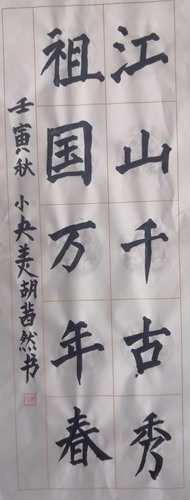 江山千古秀
祖国万年春
壬寅秋 小央美胡茜然书